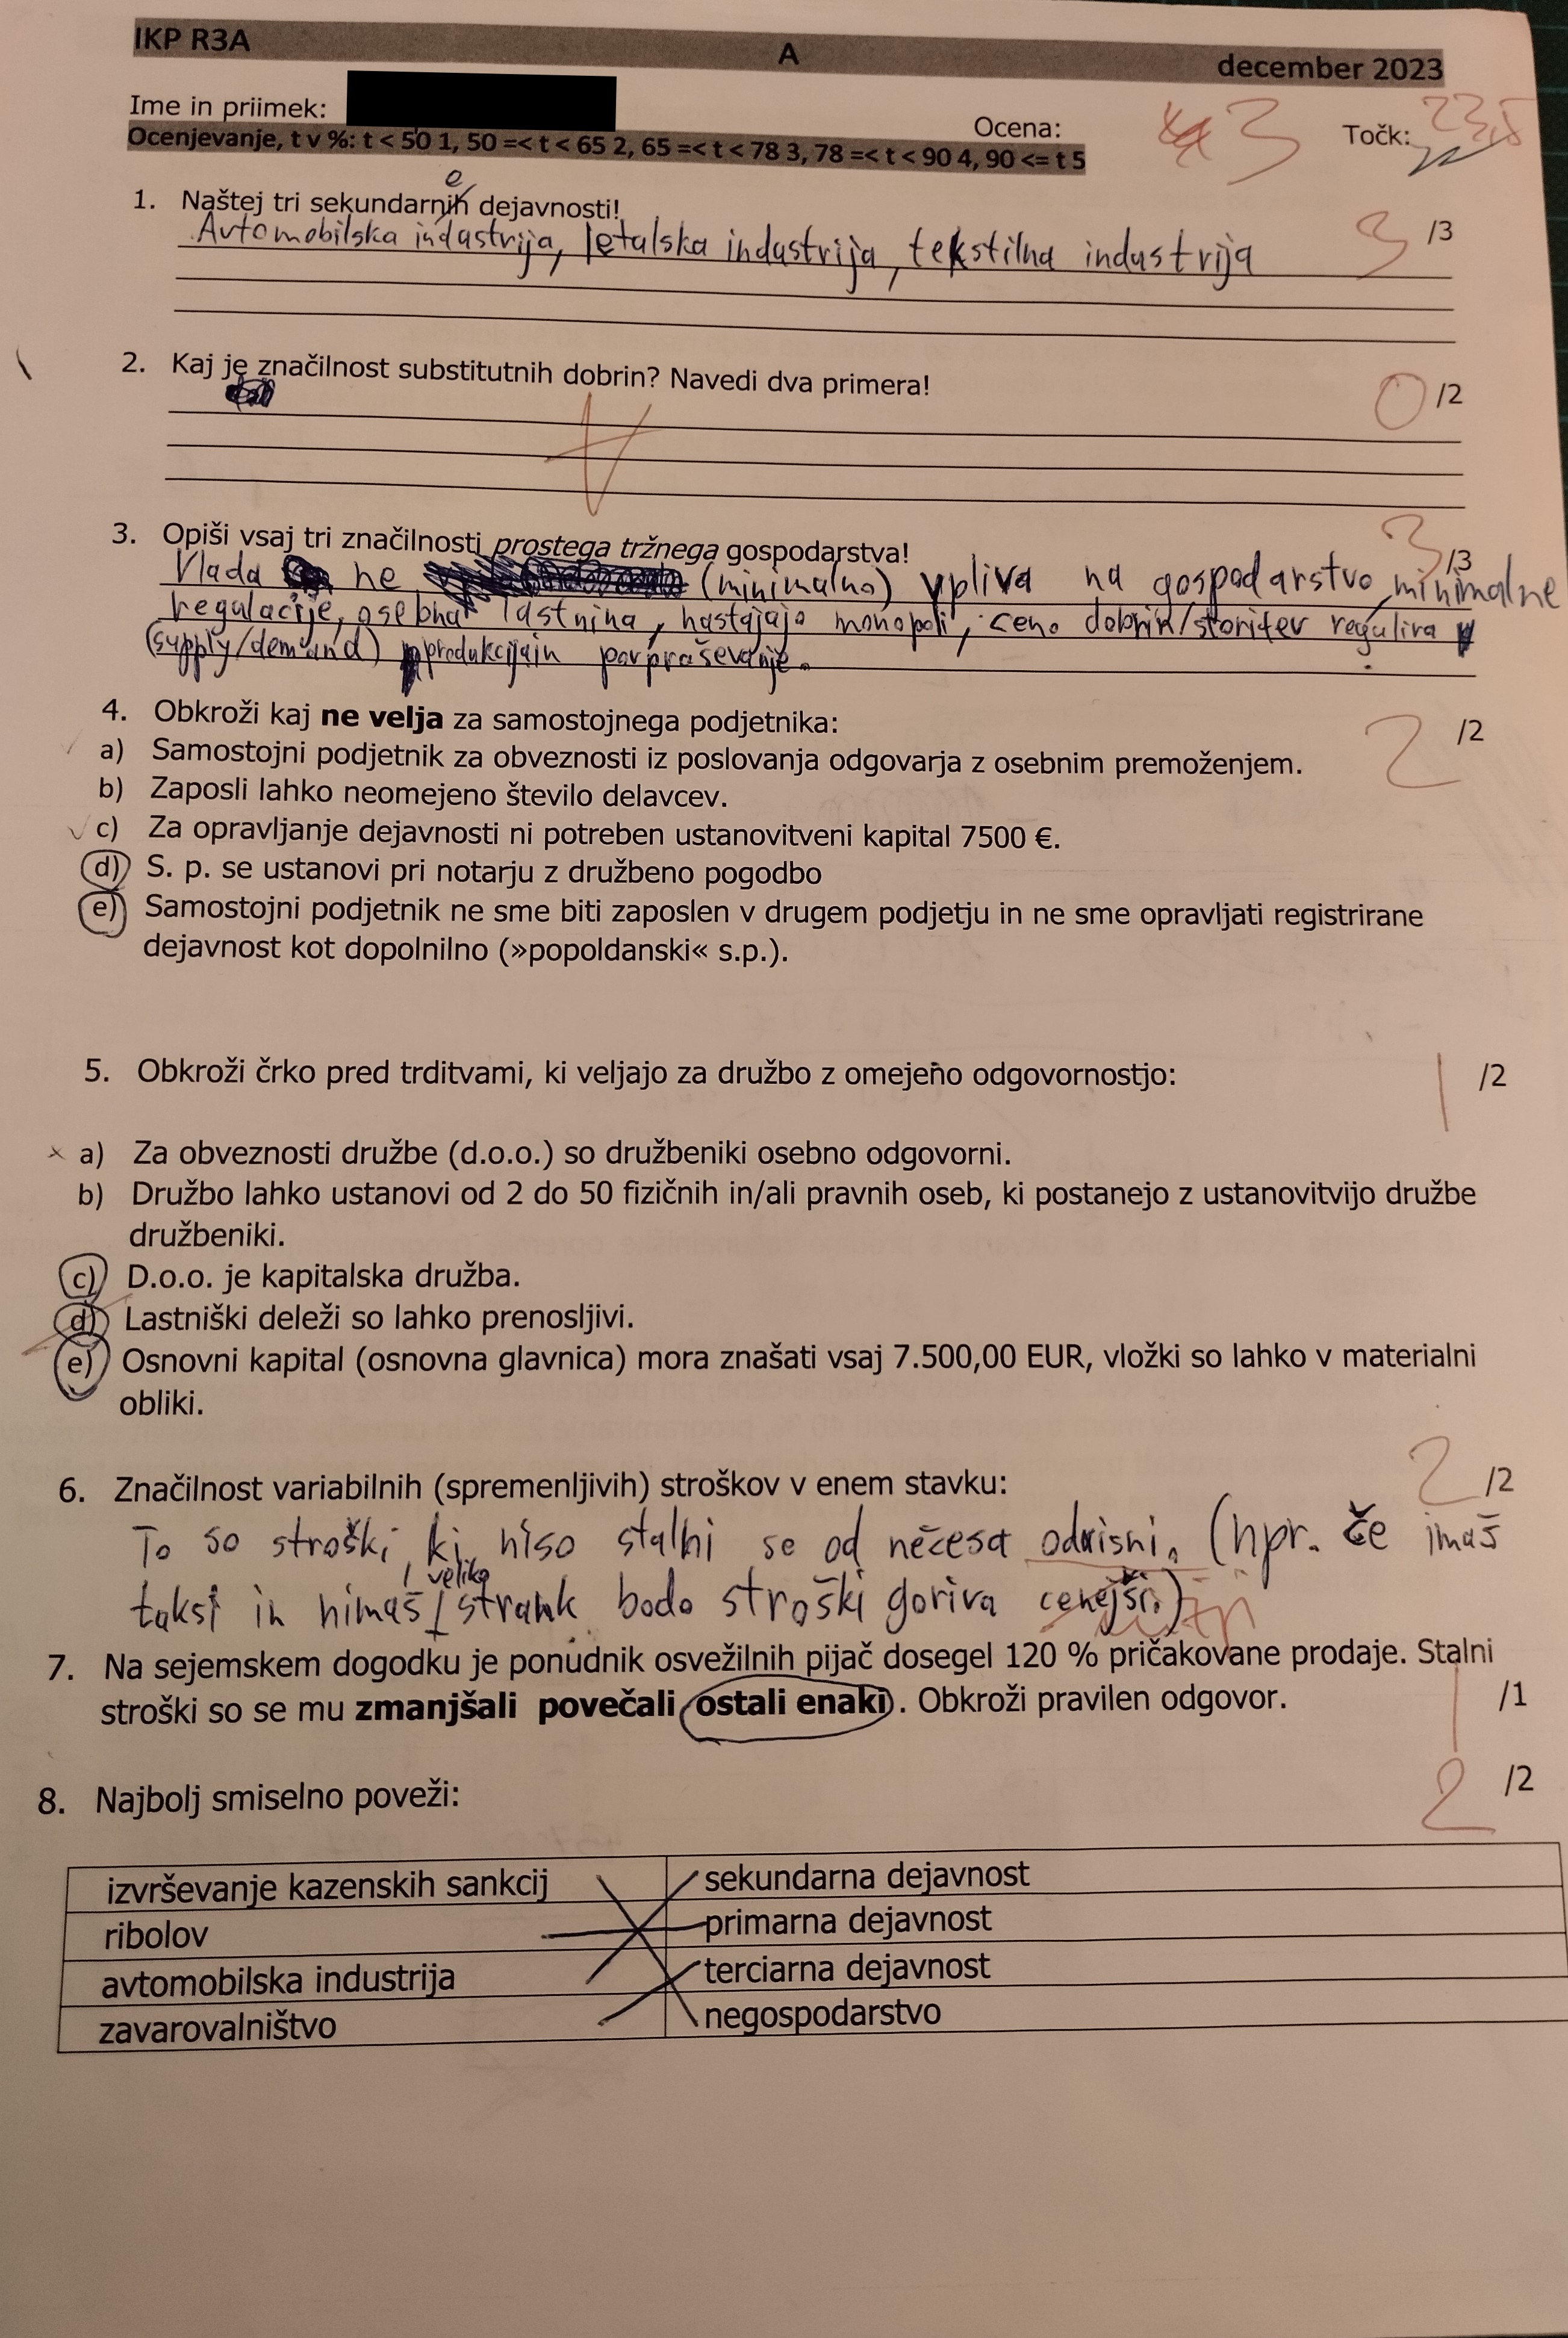 IKP R3A A december 2023
Ime in priimek:
Ocena: 3 Točk: 23,5
Ocenjevanje, t v %: t < 50 1, 50 =< t < 65 2, 65 =< t < 78 3, 78 =< t < 90 4, 90 <= t 5
e
1. Naštej tri sekundarnih dejavnosti! 3 /3
Avtomobilska industrija, letalska industrija, tekstilna industrija
2. Kaj je značilnost substitutnih dobrin? Navedi dva primera! 0 /2
3. Opiši vsaj tri značilnosti prostega tržnega gospodarstva! 3 /3
Vlada ne (minimalno) vpliva na gospodarstvo, minimalne
regulacije, osebna lastnina, nastajajo monopoli, ceno dobrin/storitev regulira
(supply/demand) produkcija in povpraševanje.
4. Obkroži kaj ne velja za samostojnega podjetnika: 2 /2
a) Samostojni podjetnik za obveznosti iz poslovanja odgovarja z osebnim premoženjem.
b) Zaposli lahko neomejeno število delavcev.
c) Za opravljanje dejavnosti ni potreben ustanovitveni kapital 7500 €.
d) S. p. se ustanovi pri notarju z družbeno pogodbo
e) Samostojni podjetnik ne sme biti zaposlen v drugem podjetju in ne sme opravljati registrirane
dejavnost kot dopolnilno (»popoldanski« s.p.).
5. Obkroži črko pred trditvami, ki veljajo za družbo z omejeno odgovornostjo: 1 /2
x a) Za obveznosti družbe (d.o.o.) so družbeniki osebno odgovorni.
b) Družbo lahko ustanovi od 2 do 50 fizičnih in/ali pravnih oseb, ki postanejo z ustanovitvijo družbe
družbeniki.
c) D.o.o. je kapitalska družba.
d) Lastniški deleži so lahko prenosljivi.
e) Osnovni kapital (osnovna glavnica) mora znašati vsaj 7.500,00 EUR, vložki so lahko v materialni
obliki.
6. Značilnost variabilnih (spremenljivih) stroškov v enem stavku: 2 /2
To so stroški, ki niso stalni se od nečesa odvisni. (npr. če imaš
taksi in nimaš veliko strank bodo stroški goriva cenejši.)
7. Na sejemskem dogodku je ponudnik osvežilnih pijač dosegel 120 % pričakovane prodaje. Stalni
stroški so se mu zmanjšali povečali ostali enaki. Obkroži pravilen odgovor. 1 /1
8. Najbolj smiselno poveži: 2 /2
izvrševanje kazenskih sankcij sekundarna dejavnost
ribolov primarna dejavnost
avtomobilska industrija terciarna dejavnost
zavarovalništvo negospodarstvo